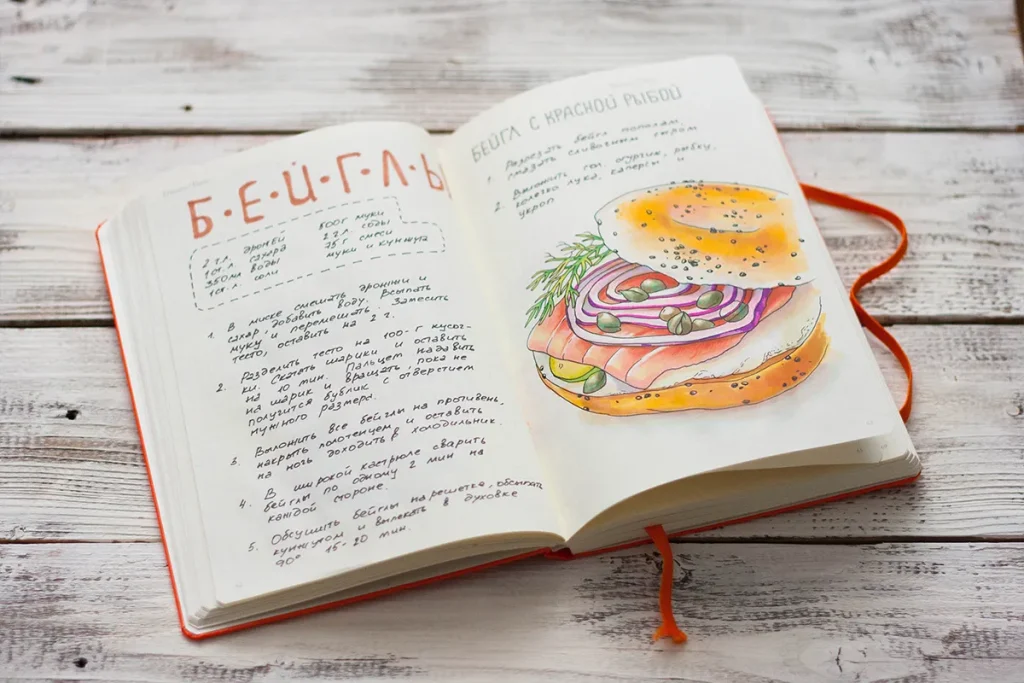 Б·Е·Й·Г·Л·Ы
2 ч.л. дрожжей 500г муки
1 ст. сахара 2 ч.л. соды
350мл воды 75 г. смеси
1 ст. л. соли муки и кунжута
1. В миске смешать дрожжи и
сахар, добавить воду. Всыпать
муку и перемешать. Замесить
тесто, оставить на 2 ч.
2. Разделить тесто на 100-г кусоч-
ки. Скатать шарики и оставить
на 10 мин. Пальцем надавить
на шарик и вращать пока не
получится бублик с отверстием
нужного размера.
3. Выложить все бейглы на противень,
накрыть полотенцем и оставить
на ночь доходить в холодильник.
4. В широкой кастрюле сварить
бейглы по одному 2 мин на
каждой стороне.
5. Обсушить бейглы на решетке, обсыпать
кунжутом и выпекать в духовке
90° 15-20 мин.
БЕЙГЛ С КРАСНОЙ РЫБОЙ
1. Разрезать бейгл пополам,
смазать сливочным сыром
2. Выложить огурчик, рыбку,
колечко лука, каперсы и
укроп